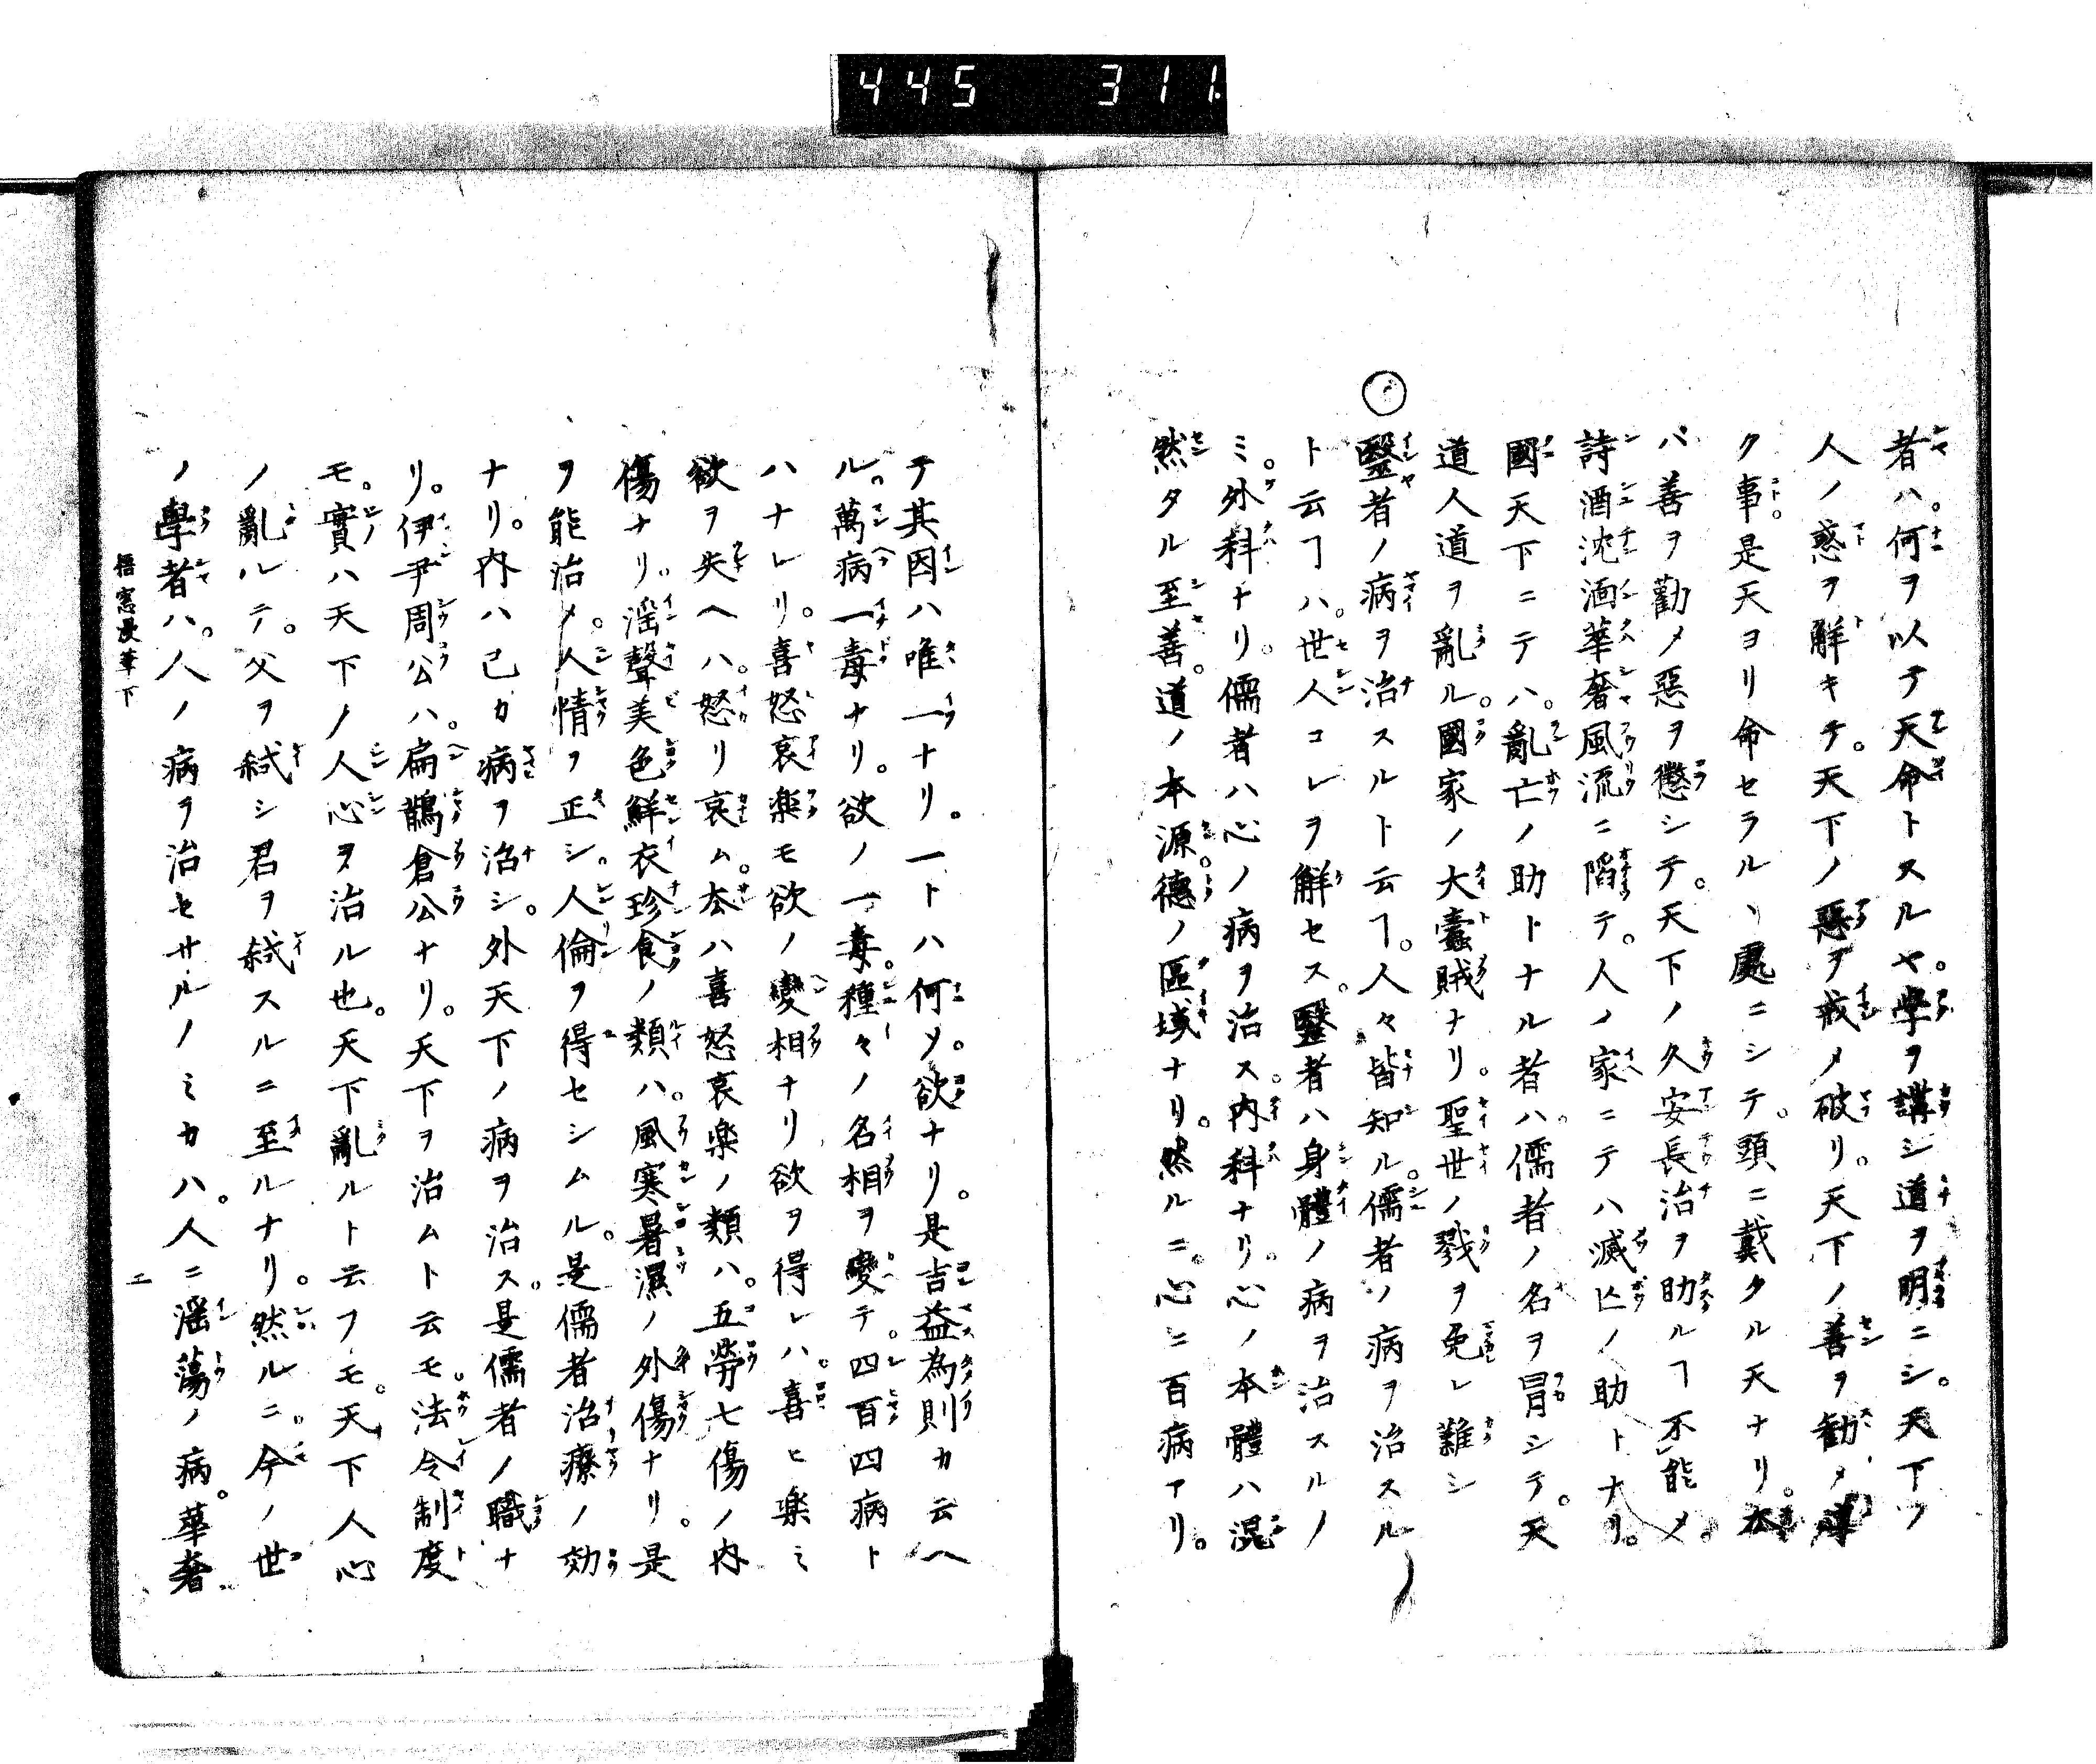 445 311
者ハ。何ヲ以テ天命トスルヤ。學ヲ講シ道ヲ明ニシ。天下ノ
人ノ惑ヲ觧キテ。天下ノ惡ヲ戒メ破リ。天下ノ善ヲ勧メ導
ク事。是天ヨリ命セラルヽ處ニシテ。頭ニ戴タル天ナリ。若
バ善ヲ勸メ惡ヲ懲シテ。天下ノ久安長治ヲ助ルヿ不能メ。
詩酒沈湎華奢風流ニ陷テ。人ノ家ニテハ滅亡ノ助トナリ。
國天下ニテハ。亂亡ノ助トナル者ハ。儒者ノ名ヲ冐シテ。天
道人道ヲ亂ル。國家ノ大蠹賊ナリ。聖世ノ戮ヲ免レ難シ
○醫者ノ病ヲ治スルト云ヿ。人々皆知ル。儒者ノ病ヲ治スル
ト云ヿハ。世人コレヲ觧セス。醫者ハ身體ノ病ヲ治スルノ
ミ。外科ナリ。儒者ハ心ノ病ヲ治ス。内科ナリ。心ノ本體ハ混
然タル至善。道ノ本源。德ノ區域ナリ。然ルニ。心ニ百病アリ。
テ其因ハ唯一ナリ。一トハ何ソ。欲ナリ。是吉益為則カ云ヘ
ル。萬病一毒ナリ。欲ノ一毒。種々ノ名相ヲ變テ。四百四病ト
ハナレリ。喜怒哀楽モ欲ノ變相ナリ欲ヲ得レハ。喜ヒ楽ミ
欲ヲ失ヘハ。怒リ哀ム。夲ハ喜怒哀楽ノ類ハ。五勞七傷ノ内
傷ナリ。淫聲美色鮮衣珍食ノ類ハ。風寒暑濕ノ外傷ナリ。是
ヲ能治メ。人情ヲ正シ。人倫ヲ得セシムル。是儒者治療ノ効
ナリ。内ハ己カ病ヲ治シ。外天下ノ病ヲ治ス。是儒者ノ職ナ
リ。伊尹周公ハ。扁鵲倉公ナリ。天下ヲ治ムト云モ。法令制度
モ。實ハ天下ノ人心ヲ治ル也。天下亂ルト云フモ。天下人心
ノ亂ルテ。父ヲ弑シ君ヲ弑スルニ至ルナリ。然ルニ。今ノ世
ノ學者ハ。人ノ病ヲ治セサルノミカハ。人ニ淫蕩ノ病。華奢
梧窓漫筆下 二